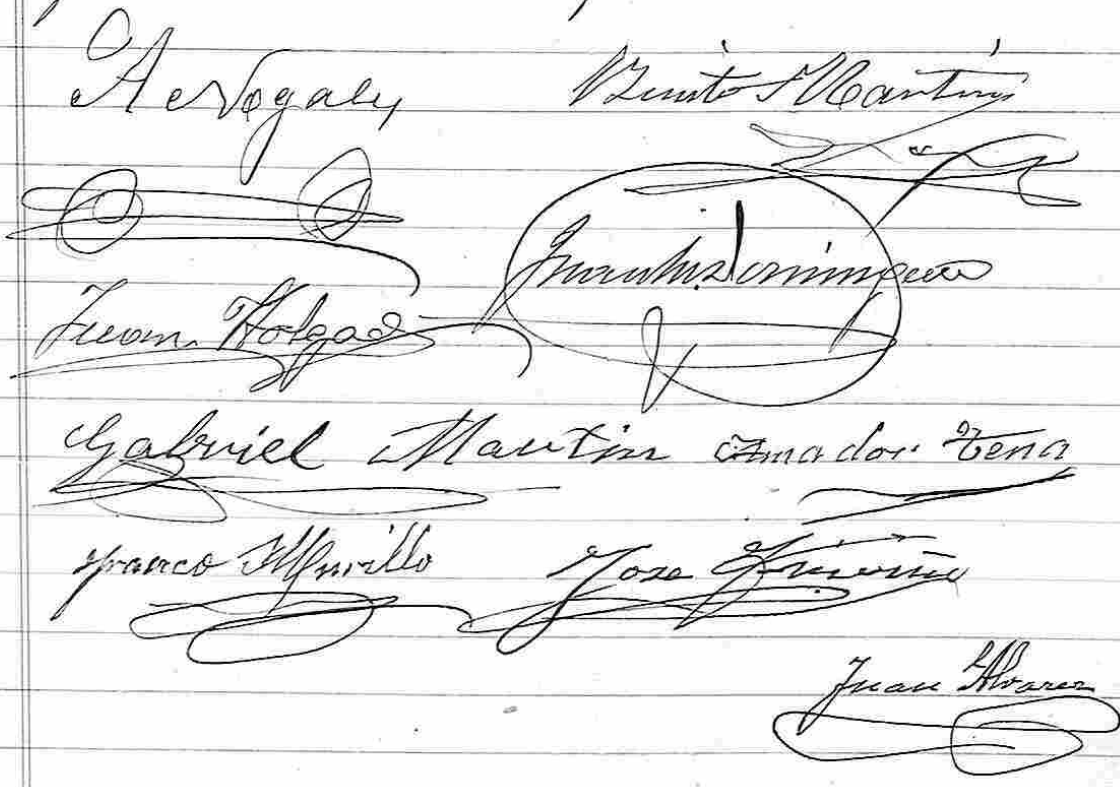 A Nogales Benito Martin
Juan Dominguez
Juan Holgado
Gabriel Martin Amador Tena
Franco Murillo Jose
Juan Alvarez